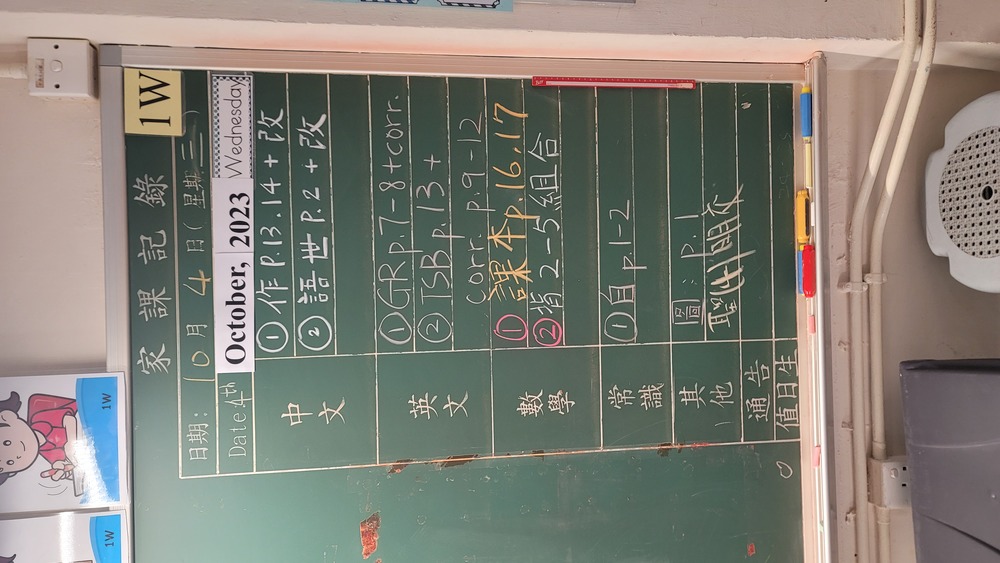 1W
家課記錄
日期: 10月4日(星期三)
Date 4th October, 2023 Wednesday
中文
①作P.13.14+改
②語世P.2+改
英文
①GRp.7-8+corr.
②TSBp.13+
corr p.9-12
數學
①課本p.16.17
②背2-5組合
常識
①自p1-2
其他
圖: p.1
通告
值日生
1W
1W